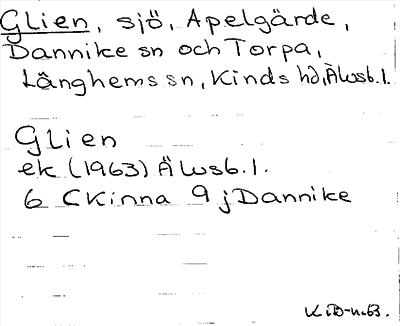 Glien, sjö, Apelgärde,
Dannike sn och Torpa,
Länghems sn, Kinds hd, Älvsb. l.
Glien
ek (1963) Älvsb. l.
6 C Kinna 9 j Dannike